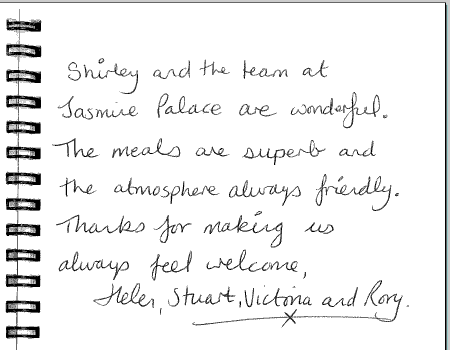 Shirley and the team at
Jasmine Palace are wonderful.
The meals are superb and
the atmosphere always friendly.
Thanks for making us
always feel welcome,
Helen, Stuart, Victoria and Rory.
x